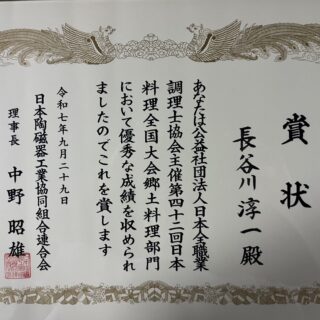 賞状
長谷川淳一殿
あなたは公益社団法人日本全職業
調理士協会主催第四十二回日本
料理全国大会郷土料理部門
において優秀な成績を収められ
ましたのでこれを賞します
令和七年九月二十九日
日本陶磁器工業協同組合連合会
理事長 中野昭雄